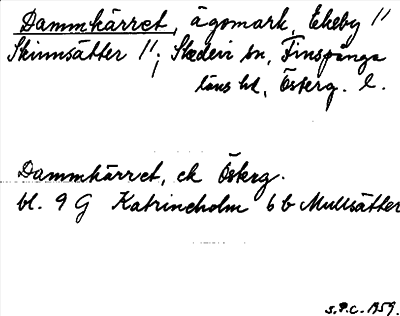 Dammkärret, ägomark, Ekeby 1/1
Skinnsätter 1/1; Skedevi sn, Finspånga
läns hd, Österg. l.
Dammkärret, ek Österg.
bl. 9 G Katrineholm 6 b Mullsätter
S.P.C. 1959.